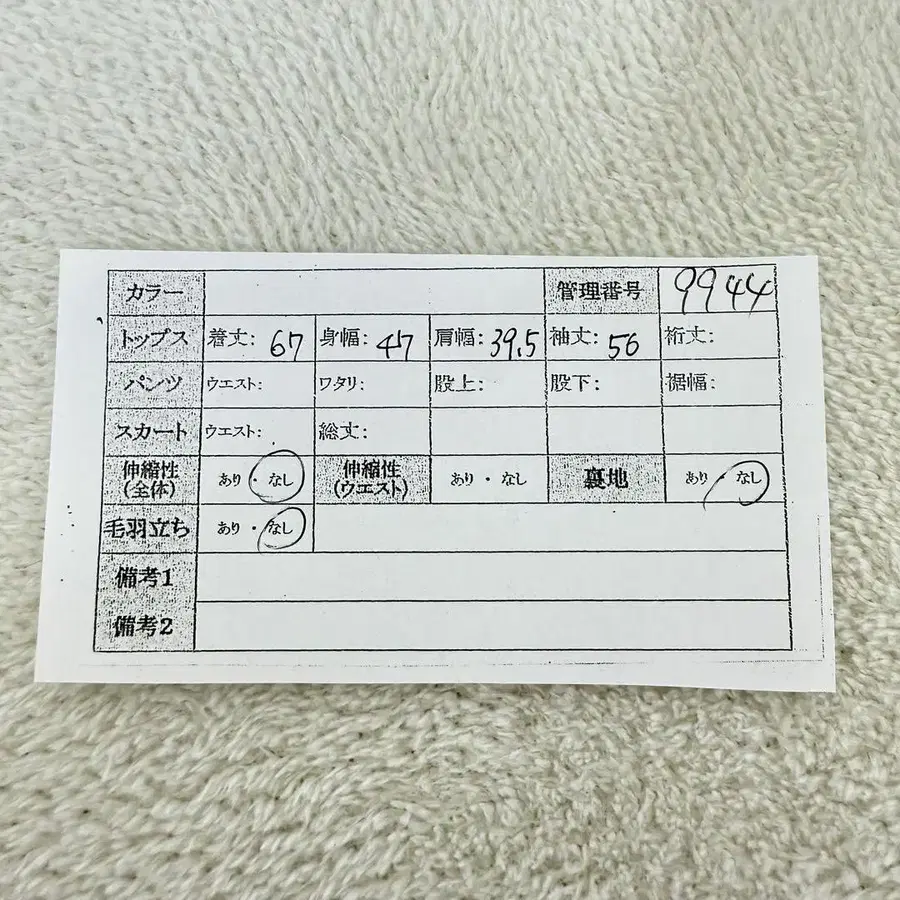 カラー 管理番号 9944
トップス 着丈: 67 身幅: 47 肩幅: 39.5 袖丈: 56 裄丈:
パンツ ウエスト: ワタリ: 股上: 股下: 裾幅:
スカート ウエスト: 総丈:
伸縮性(全体) あり・なし 伸縮性(ウエスト) あり・なし 裏地 あり・なし
毛羽立ち あり・なし
備考1
備考2